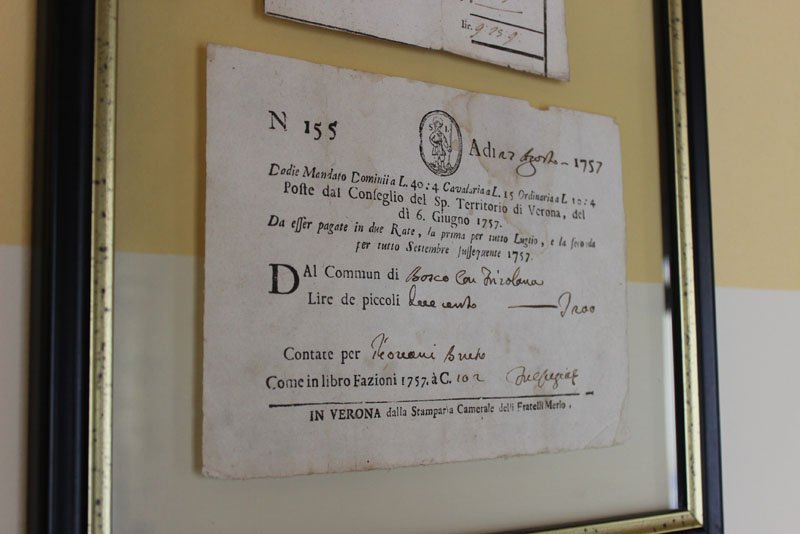 lir. 9:13.9.
N 155
S I
Adi 12 Agosto - 1757
Dodie Mandato Dominii a L. 40:4 Cavalaria a L. 15 Ordinaria a L 12:4
Poste dal Conseglio del Sp. Territorio di Verona, del
dì 6. Giugno 1757.
Da esser pagate in due Rate, la prima per tutto Luglio, e la seconda
per tutto Settembre sussequente 1757.
DAl Commun di Bosco con
Lire de piccoli duecento
Contate per
Come in libro Fazioni 1757. à C. 102
IN VERONA dalla Stamparia Camerale delli Fratelli Merlo.